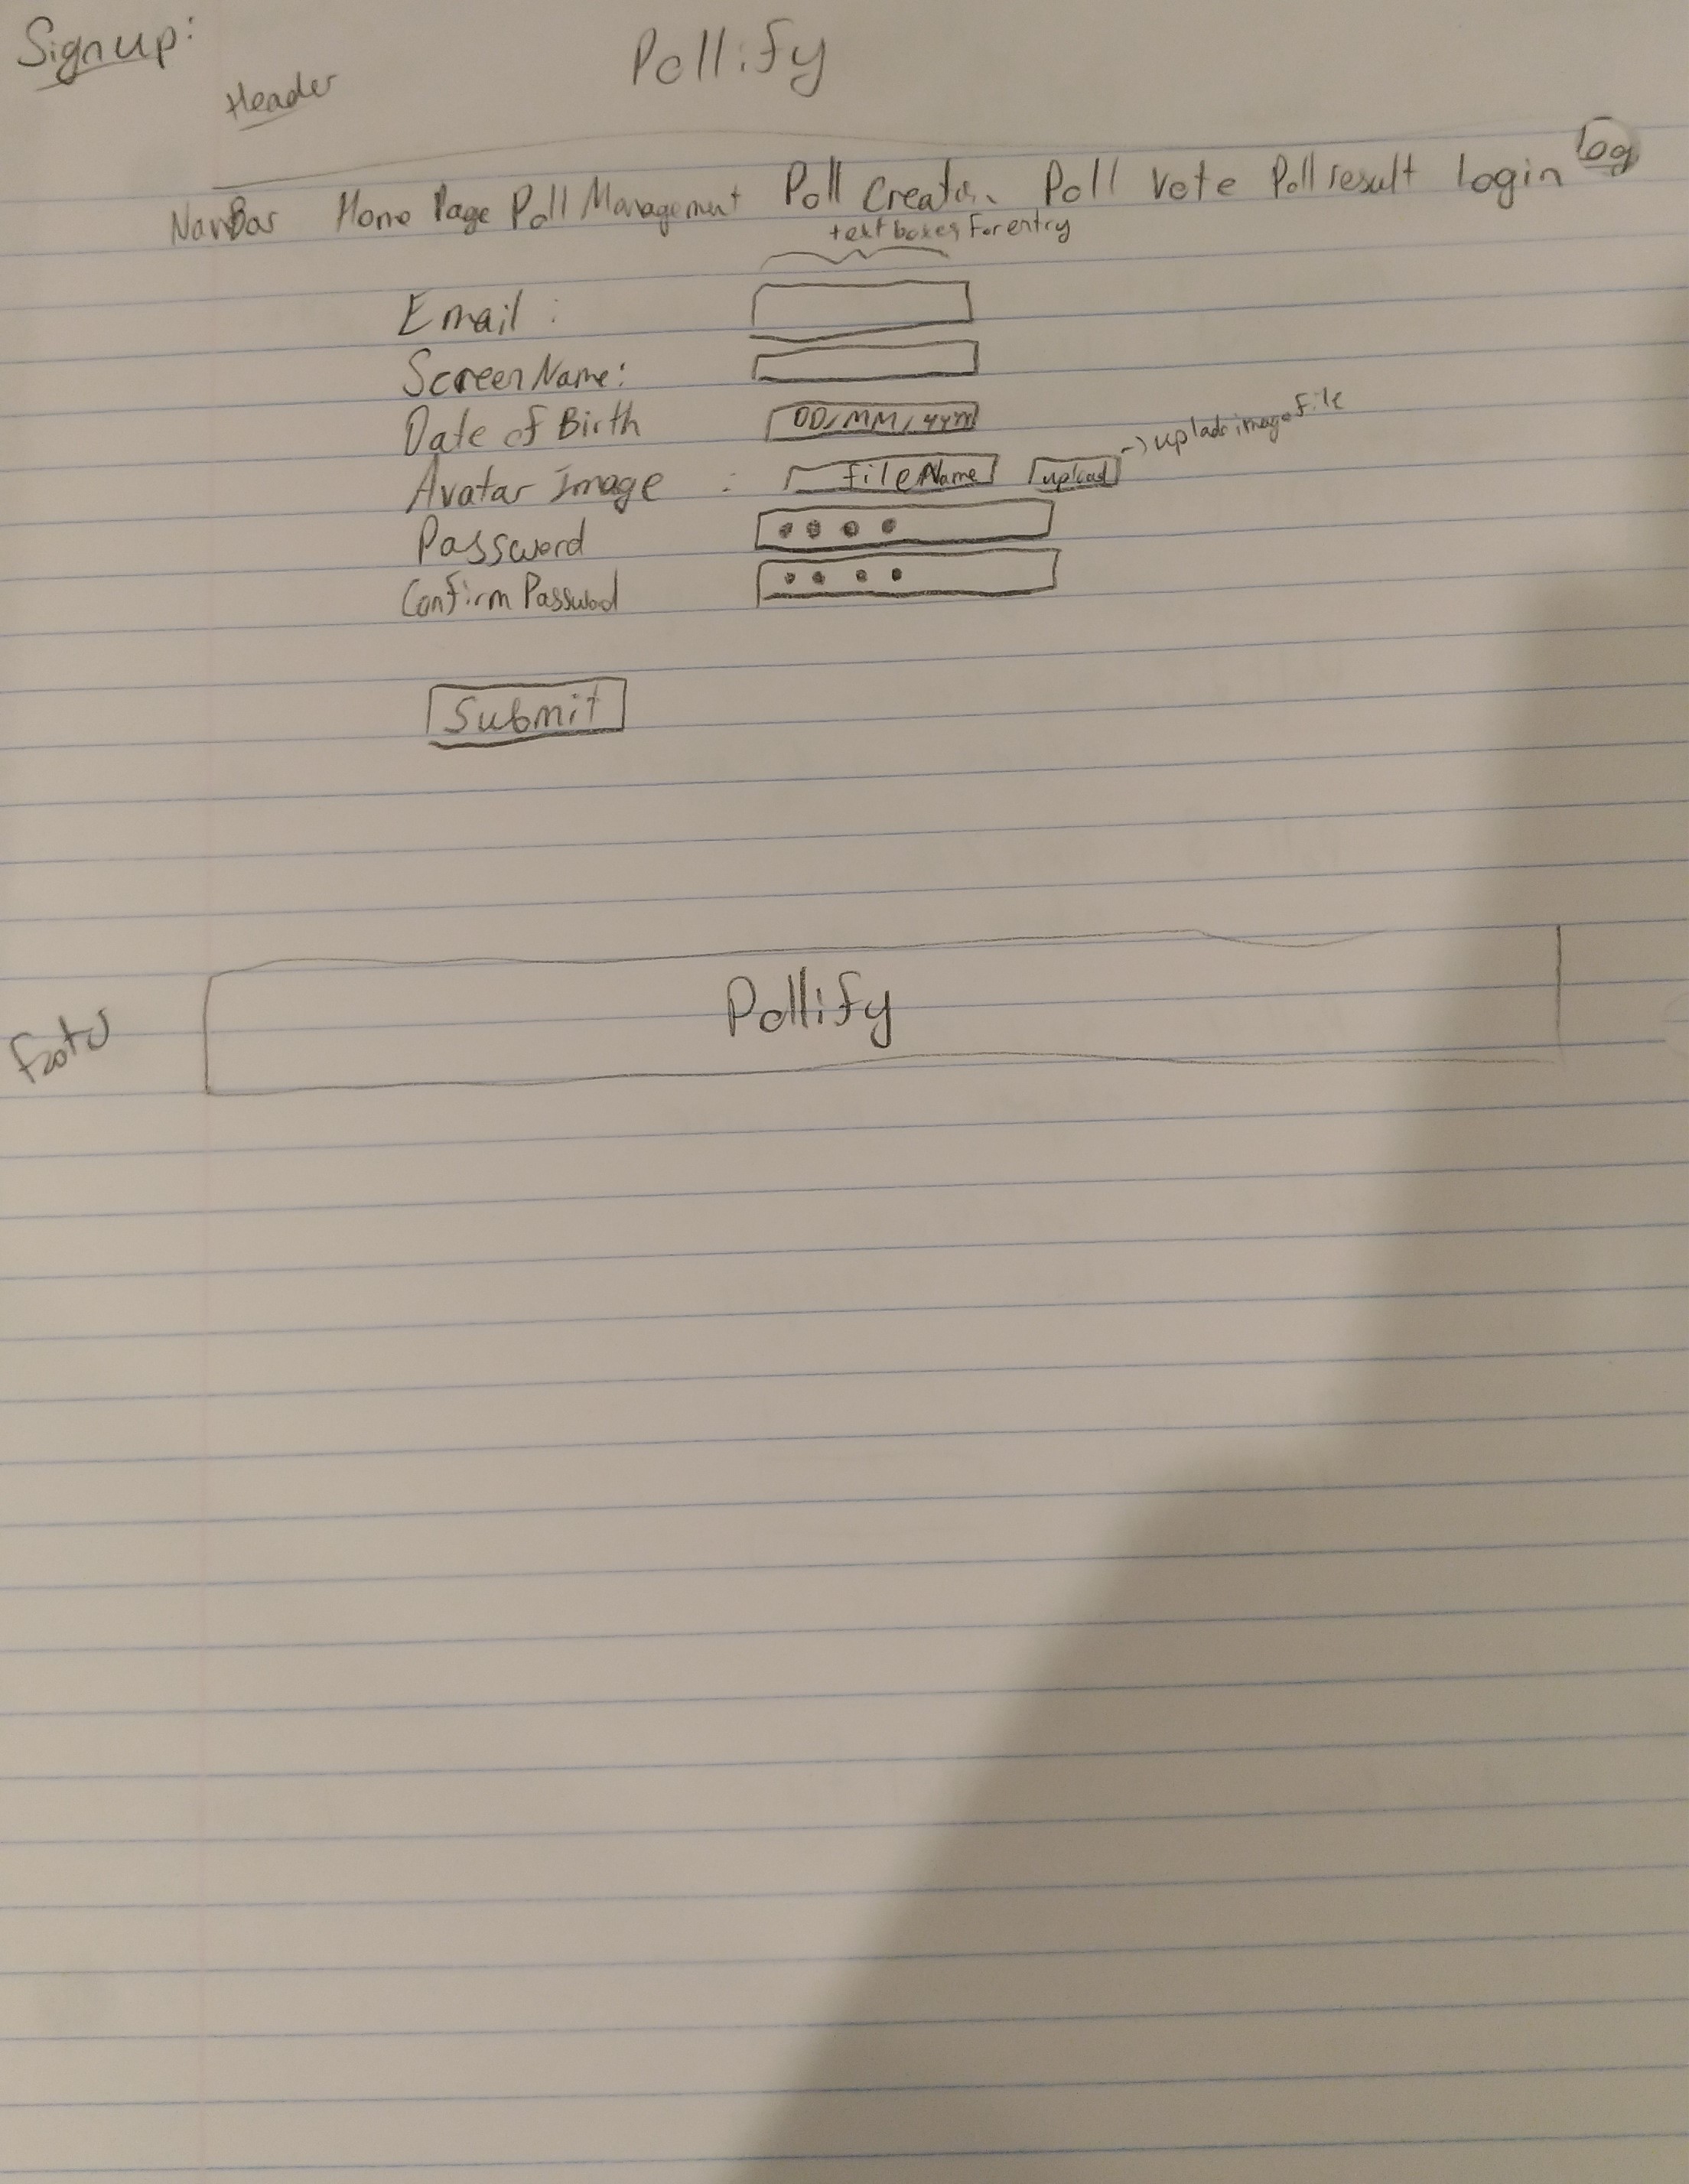 Signup:
Pollify
Header
NavBar Home Page Poll Management Poll Creation Poll Vote Poll result login
text boxes for entry
Email :
ScreenName:
Date of Birth DD/MM/YYYY
Avatar Image : fileName upload → upload image file
Password
Confirm Password
Submit
Footer
Pollify